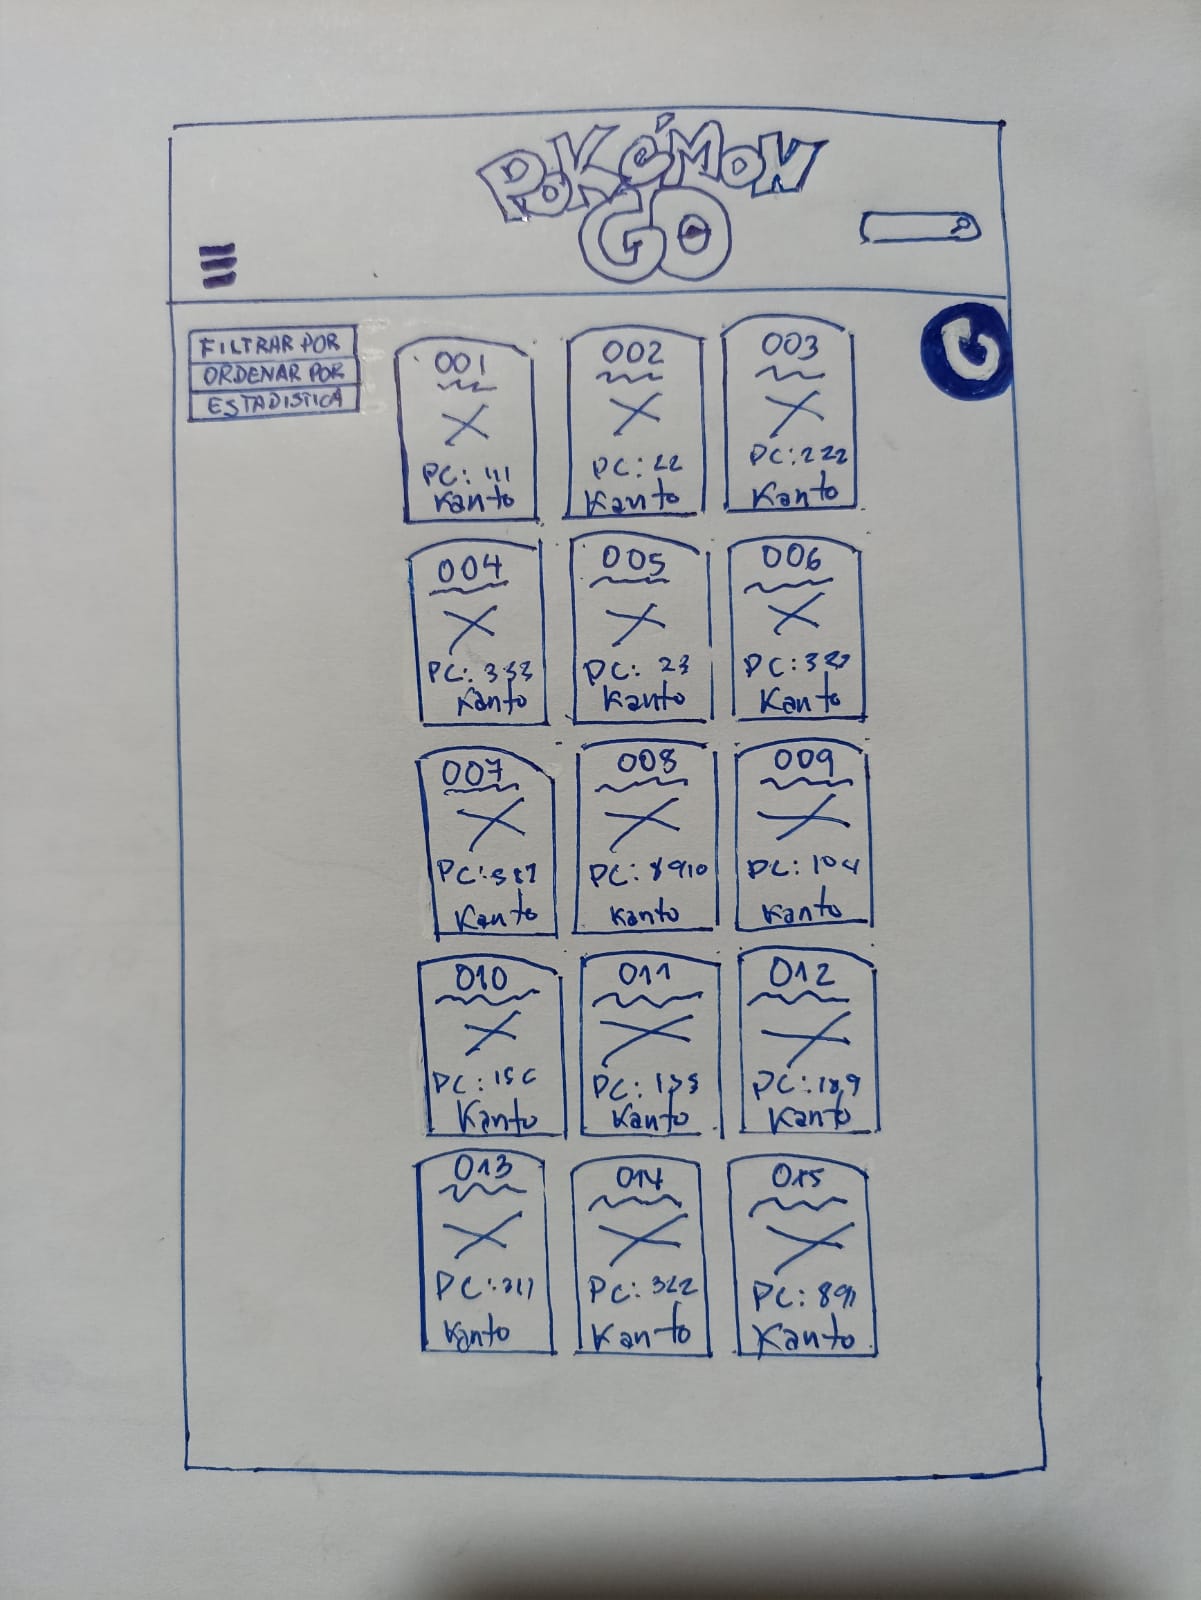 POKÉMON
GO
FILTRAR POR
ORDENAR POR
ESTADISTICA
001
PC: 111
Kanto
002
PC: 22
Kanto
003
PC: 222
Kanto
004
PC: 333
Kanto
005
PC: 23
Kanto
006
PC:
Kanto
007
PC:
Kanto
008
PC: 8910
Kanto
009
PC: 104
Kanto
010
PC:
Kanto
011
PC:
Kanto
012
PC: 189
Kanto
013
PC: 311
Kanto
014
PC: 322
Kanto
015
PC:
Kanto